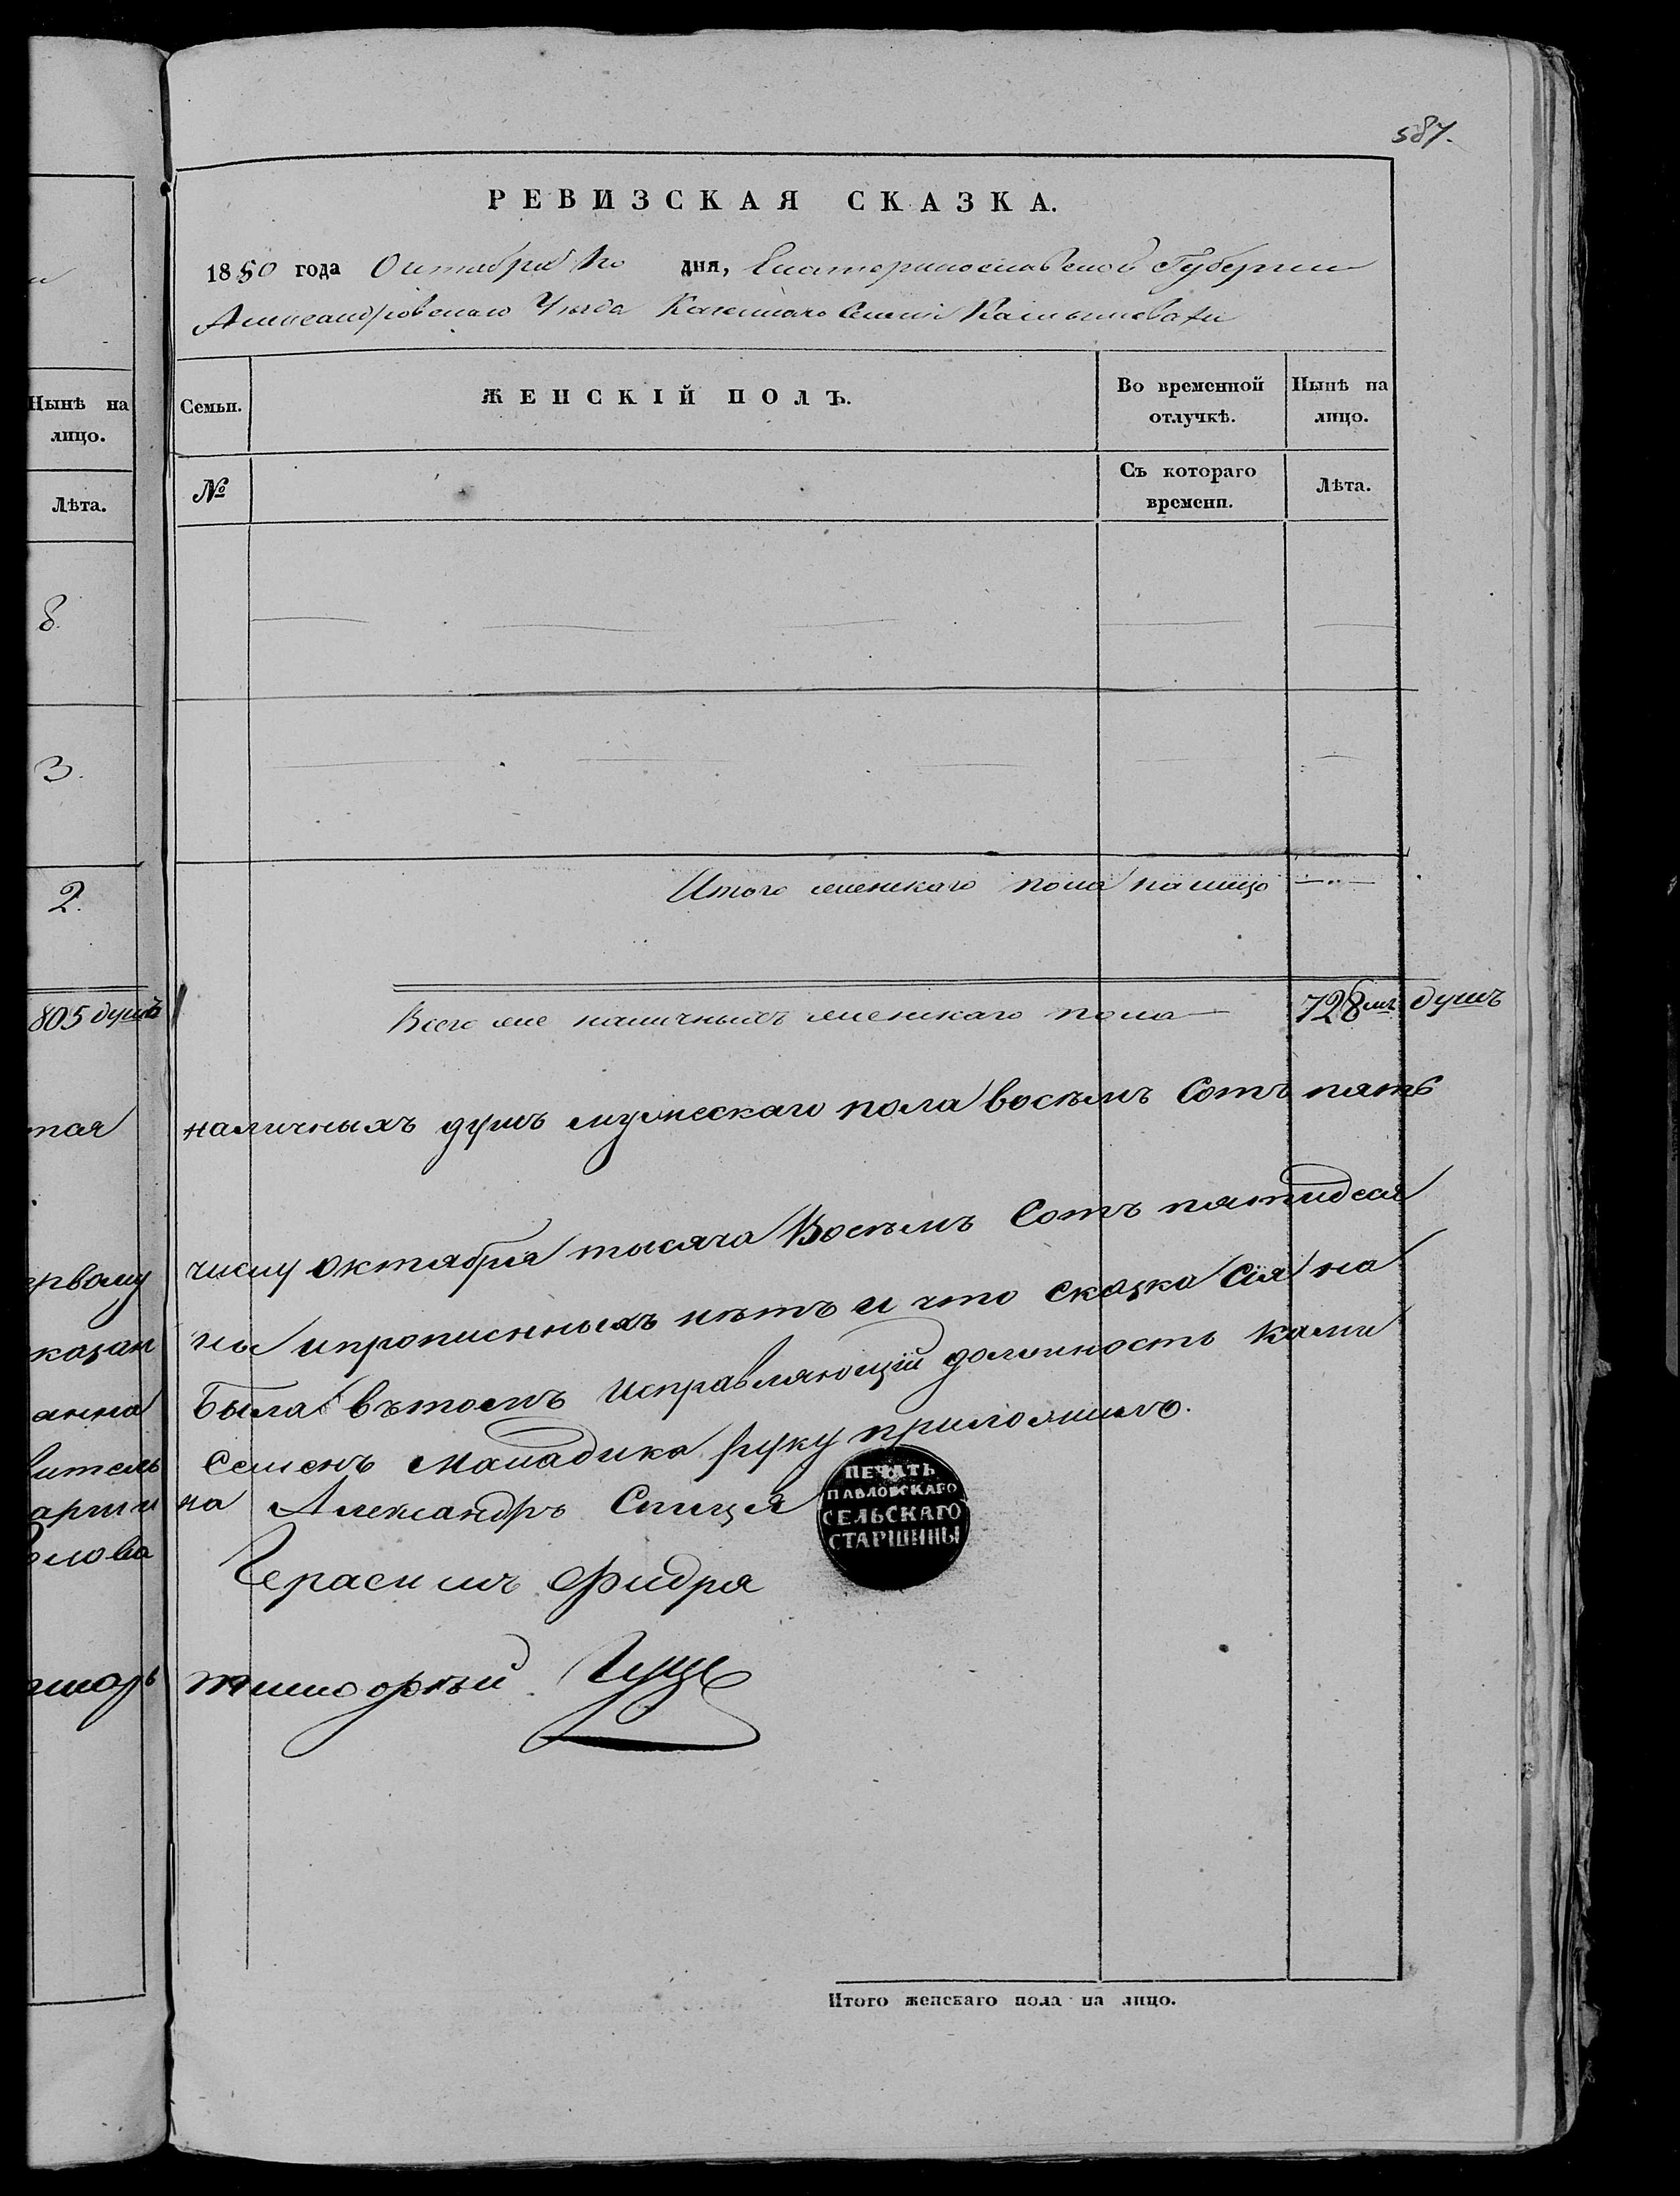 587.
РЕВИЗСКАЯ СКАЗКА.
1850 года Октября 1го дня, Екатеринославской Губернии
Александровского Уѣзда Казеннаго Селенія
Нынѣ на
лицо.
Лѣта.
8.
3.
2.
805 душъ
тая
ервому
казан
анна
витель
арши
олова
Семьи.
ЖЕНСКІЙ ПОЛЪ.
Во временной
отлучкѣ.
Нынѣ на
лицо.
№
Съ котораго
времени.
Лѣта.
Итого женскаго пола налицо
Всего же наличныхъ женскаго пола 728мъ душъ
наличныхъ душъ мужескаго пола восѣмъ Сотъ пять
числу октября тысяча Восѣмъ Сотъ пятидеся
ны ипрописныхъ нѣтъ и что сказка Сія на
Была вътомъ исправляющій должность
Семенъ руку приложилъ.
на Александръ Спица
Герасимъ Фидря
Тимофѣй
ПЕЧАТЬ
ПАВЛОВСКАГО
СЕЛЬСКАГО
СТАРШИНЫ
Итого женскаго пола на лицо.